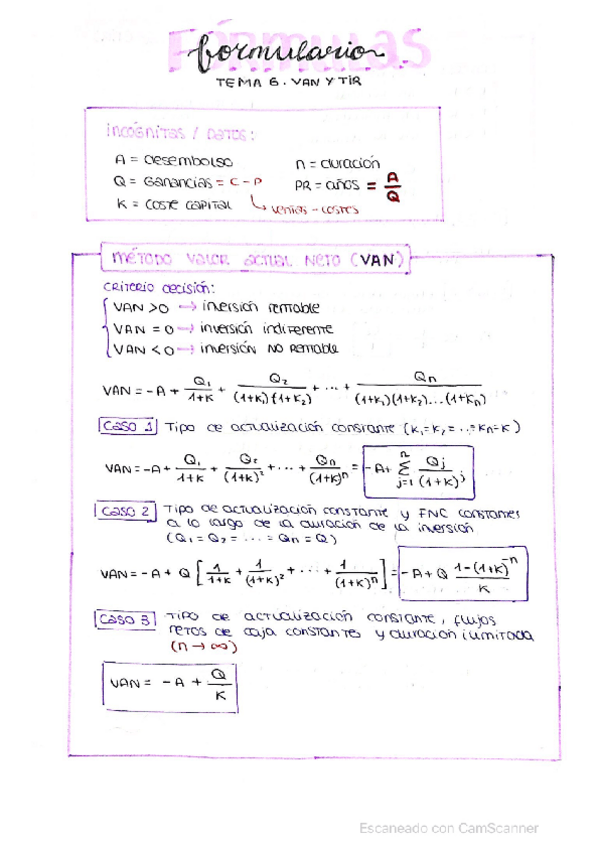 Fórmulas
formulario
TEMA 6. VAN Y TIR
INCÓGNITAS / DATOS:
A = Desembolso
n = duración
Q = Ganancias = C - P
PR = años = A/Q
K = COSTE CAPITAL
ventas - costes
MÉTODO VALOR ACTUAL NETO (VAN)
CRITERIO DECISIÓN:
VAN > 0 → inversión rentable
VAN = 0 → inversión indiferente
VAN < 0 → inversión NO Rentable
VAN = -A + Q₁/1+K + Q₂/(1+K₁)(1+K₂) + ... + Qn/(1+K₁)(1+K₂)...(1+Kn)
CASO 1 Tipo de actualización constante (K₁=K₂=...=Kn=K)
VAN = -A + Q₁/1+K + Q₂/(1+K)² + ... + Qn/(1+K)ⁿ = -A + Σ n j=1 Qj/(1+K)ʲ
CASO 2 Tipo de actualización constante y FNC constantes
a lo largo de la duración de la inversión
(Q₁ = Q₂ = ... = Qn = Q)
VAN = -A + Q [1/1+K + 1/(1+K)² + ... + 1/(1+K)ⁿ] = -A + Q 1-(1+K)⁻ⁿ/K
CASO 3 Tipo de actualización constante, flujos
netos de caja constantes y duración ilimitada
(n → ∞)
VAN = -A + Q/K
Escaneado con CamScanner